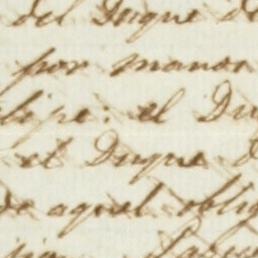 del Duque de
por manos
lipe: el Du
el Duque d
de aquel oblig